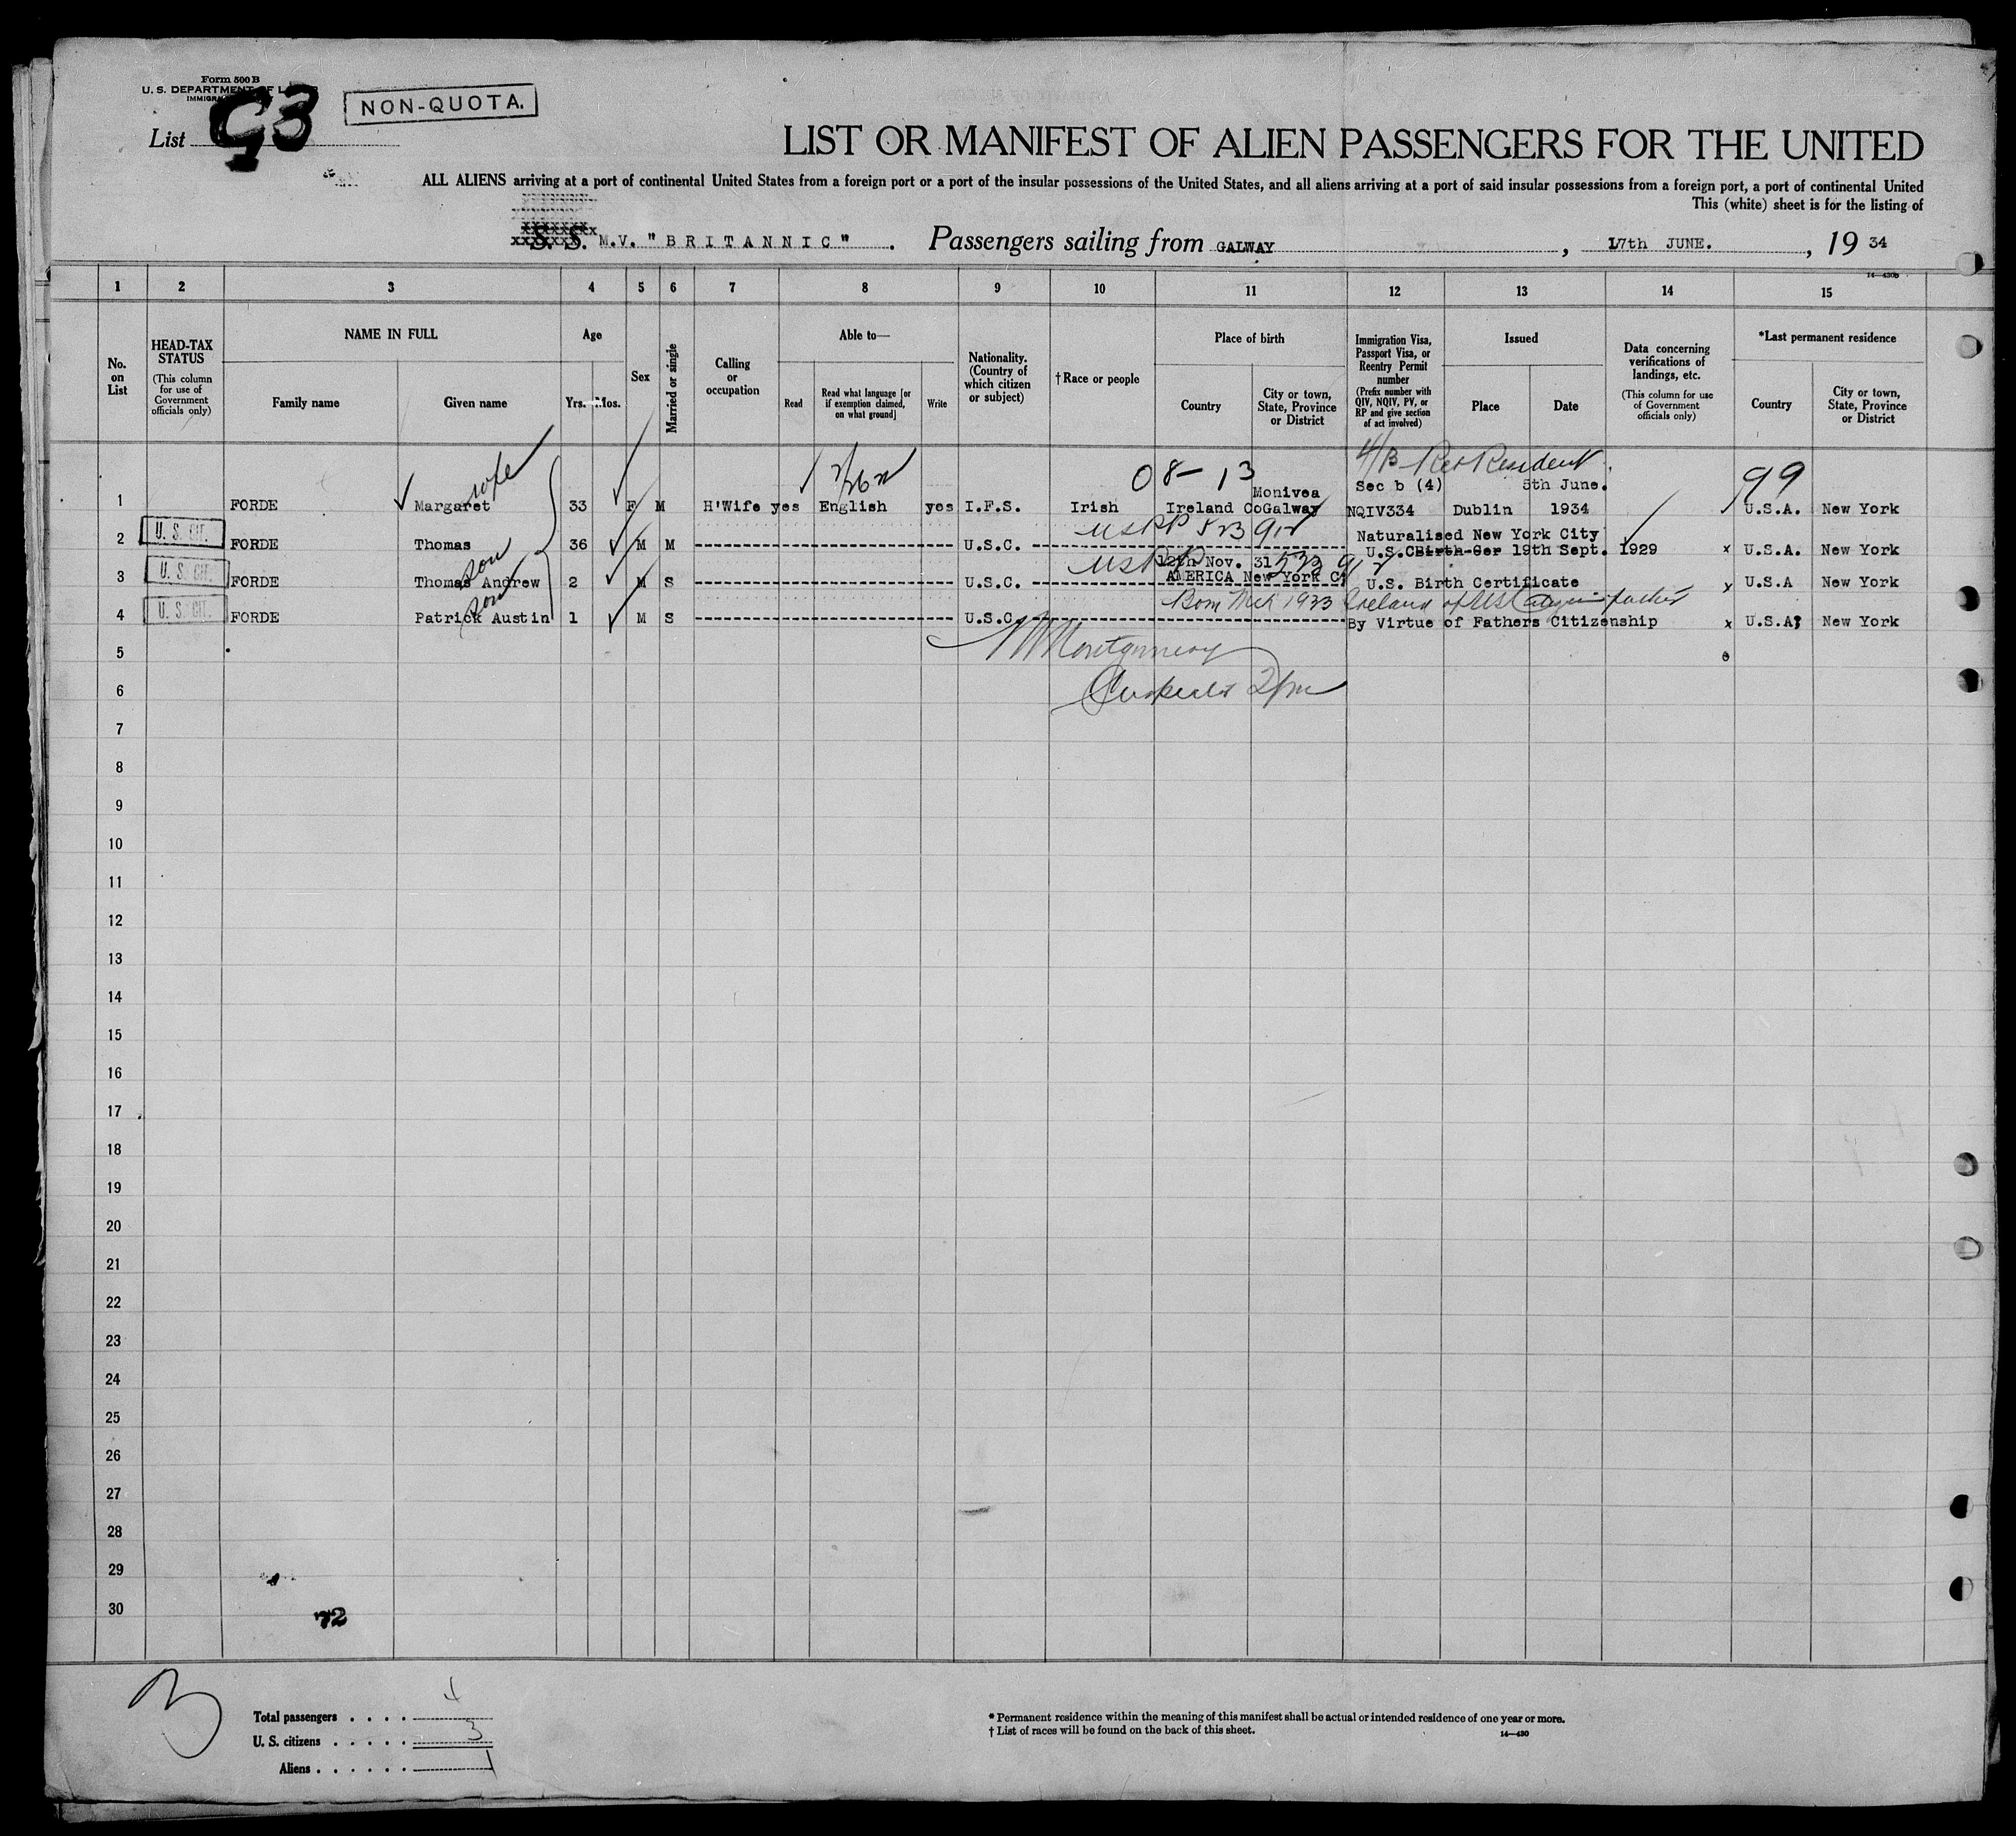 Form 500 B
U. S. DEPARTMENT OF L
IMMIGRA
List G3
NON-QUOTA.
LIST OR MANIFEST OF ALIEN PASSENGERS FOR THE UNITED
ALL ALIENS arriving at a port of continental United States from a foreign port or a port of the insular possessions of the United States, and all aliens arriving at a port of said insular possessions from a foreign port, a port of continental United
This (white) sheet is for the listing of
S. S. M.V. "BRITANNIC" . Passengers sailing from GALWAY , 17th JUNE. , 19 34
14-430b
1 2 3 4 5 6 7 8 9 10 11 12 13 14 15
No. on List
HEAD-TAX STATUS
(This column for use of Government officials only)
NAME IN FULL
Family name
Given name
Age
Yrs. Mos.
Sex
Married or single
Calling or occupation
Able to—
Read
Read what language [or if exemption claimed, on what ground]
Write
Nationality. (Country of which citizen or subject)
†Race or people
Place of birth
Country
City or town, State, Province or District
Immigration Visa, Passport Visa, or Reentry Permit number
(Prefix number with QIV, NQIV, PV, or RP and give section of act involved)
Issued
Place
Date
Data concerning verifications of landings, etc.
(This column for use of Government officials only)
*Last permanent residence
Country
City or town, State, Province or District
wife
08-13
4/B Ret Resident
99
Monivea Sec b (4) 5th June.
1 FORDE Margaret 33 F M H'Wife yes English yes I.F.S. Irish Ireland CoGalway NQIV334 Dublin 1934 U.S.A. New York
USPP 523912
Naturalised New York City
2 U. S. CIT. FORDE Thomas 36 M M U.S.C. U.S.CBirth Cer 19th Sept. 1929 x U.S.A. New York
son
USPP 523912
12th Nov. 31
AMERICA New York C
3 U. S. CIT. FORDE Thomas Andrew 2 M S U.S.C. U.S. Birth Certificate x U.S.A New York
son
Born Mch 1933 Ireland of US Citizen father
4 U. S. CIT. FORDE Patrick Austin 1 M S U.S.C. By Virtue of Fathers Citizenship x U.S.A; New York
5
Montgomery
6
7
8
9
10
11
12
13
14
15
16
17
18
19
20
21
22
23
24
25
26
27
28
29
30
72
Total passengers . . . . 4
U. S. citizens . . . . . 3
Aliens . . . . . . 1
* Permanent residence within the meaning of this manifest shall be actual or intended residence of one year or more.
† List of races will be found on the back of this sheet.
14—430